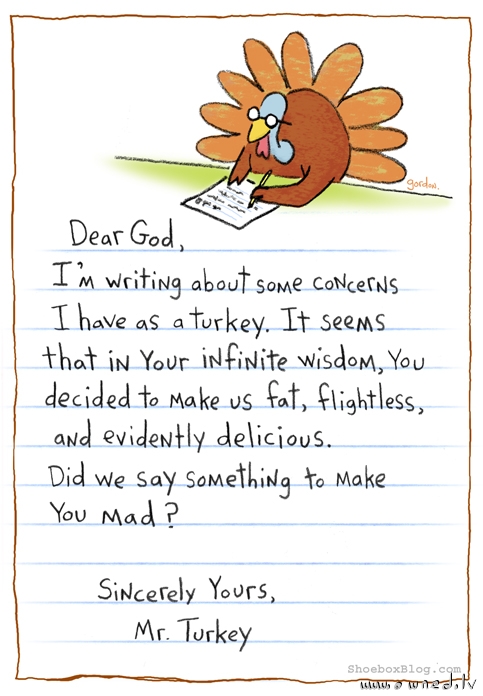 gordon.
Dear God,
I'm writing about some concerns
I have as a turkey. It seems
that in Your infinite wisdom, You
decided to make us fat, flightless,
and evidently delicious.
Did we say something to make
You mad?
Sincerely Yours,
Mr. Turkey
ShoeboxBlog.com
www.owned.tv